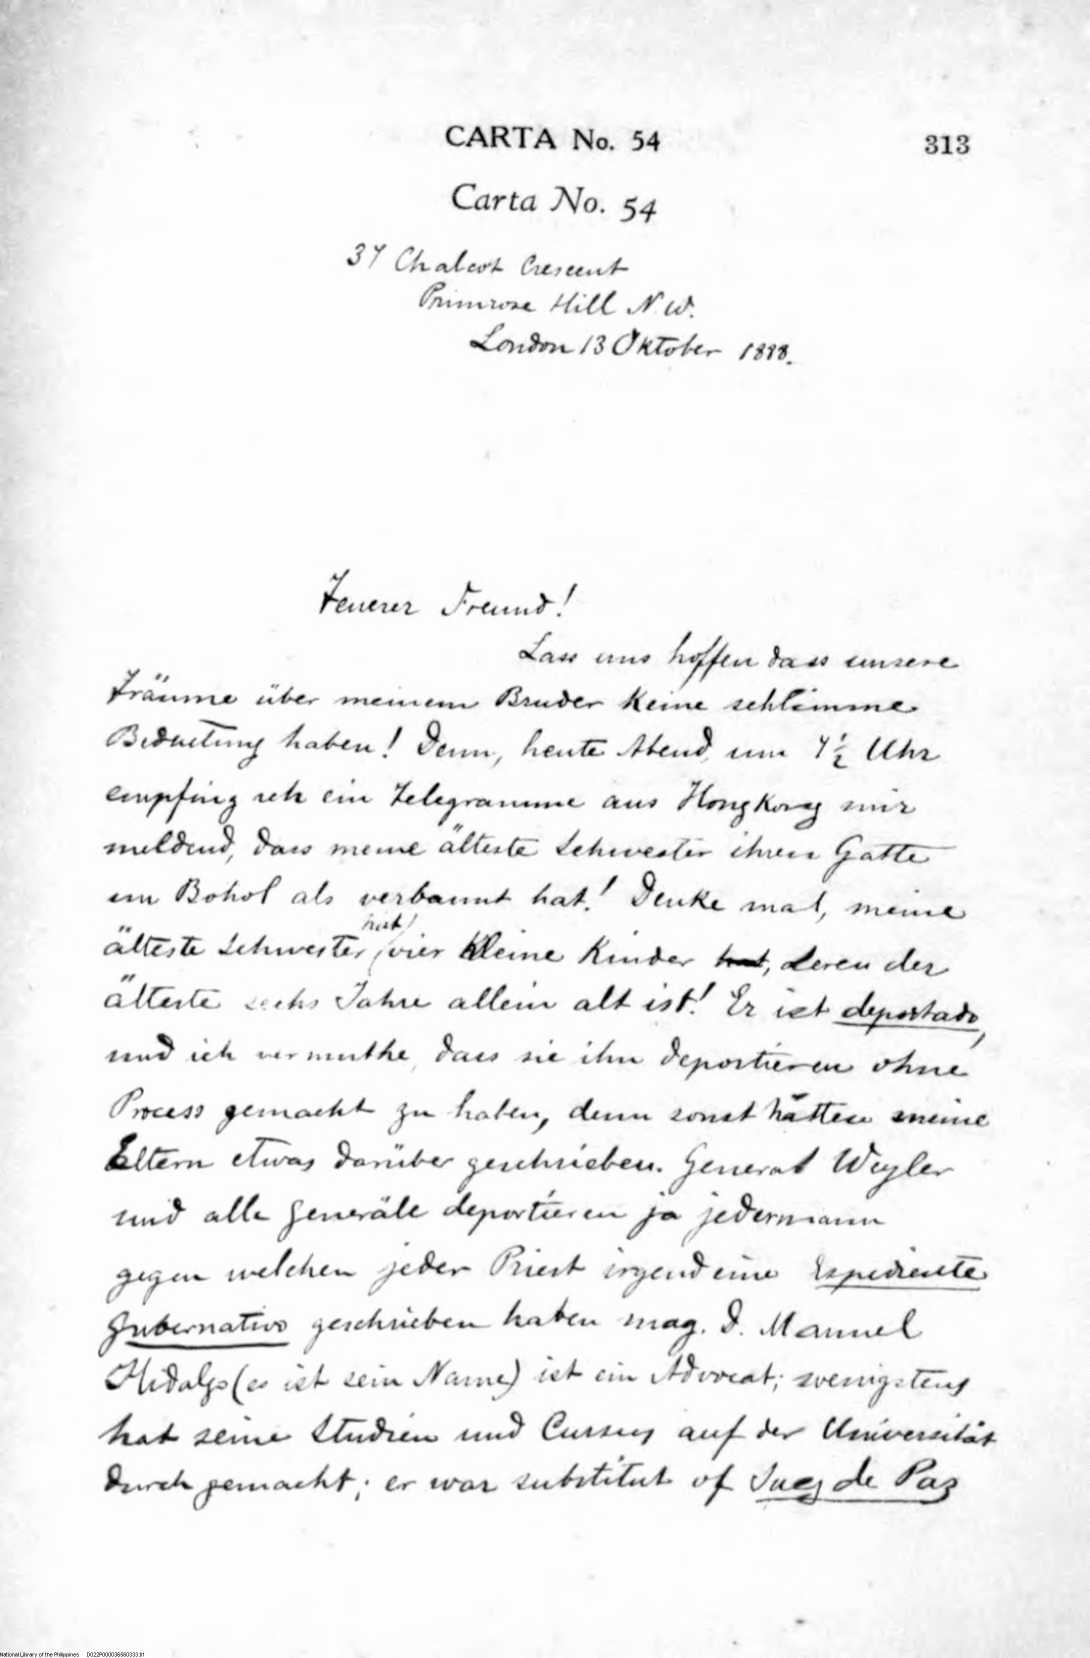 CARTA No. 54
313
Carta No. 54
37 Chalcot Crescent
Primrose Hill N.W.
London 13 Oktober 1888.
Teuerer Freund!
Lass uns hoffen dass unsere
Träume über meinem Bruder keine schlimme
Bedeutung haben! Denn, heute Abend, um 7 1/2 Uhr
empfing ich ein Telegramme aus HongKong mir
meldend, dass meine älteste Schwester ihren Gatte
in Bohol als verbannt hat! Denke mal, meine
älteste Schwester hat vier kleine Kinder hat, deren der
älteste sechs Jahre allein alt ist! Er ist deportado,
und ich vermuthe, dass sie ihn deportieren ohne
Process gemacht zu haben, denn sonst hätten meine
Eltern etwas darüber geschrieben. General Weyler
und alle Generäle deportieren ja jedermann
gegen welchen jeder Priest irgend eine Expediente
gubernativo geschrieben haben mag. D. Manuel
Hidalgo (es ist sein Name) ist ein Advocat; wenigstens
hat seine Studien und Cursus auf der Universität
durch gemacht; er war substitut of Juez de Paz
National Library of the Philippines